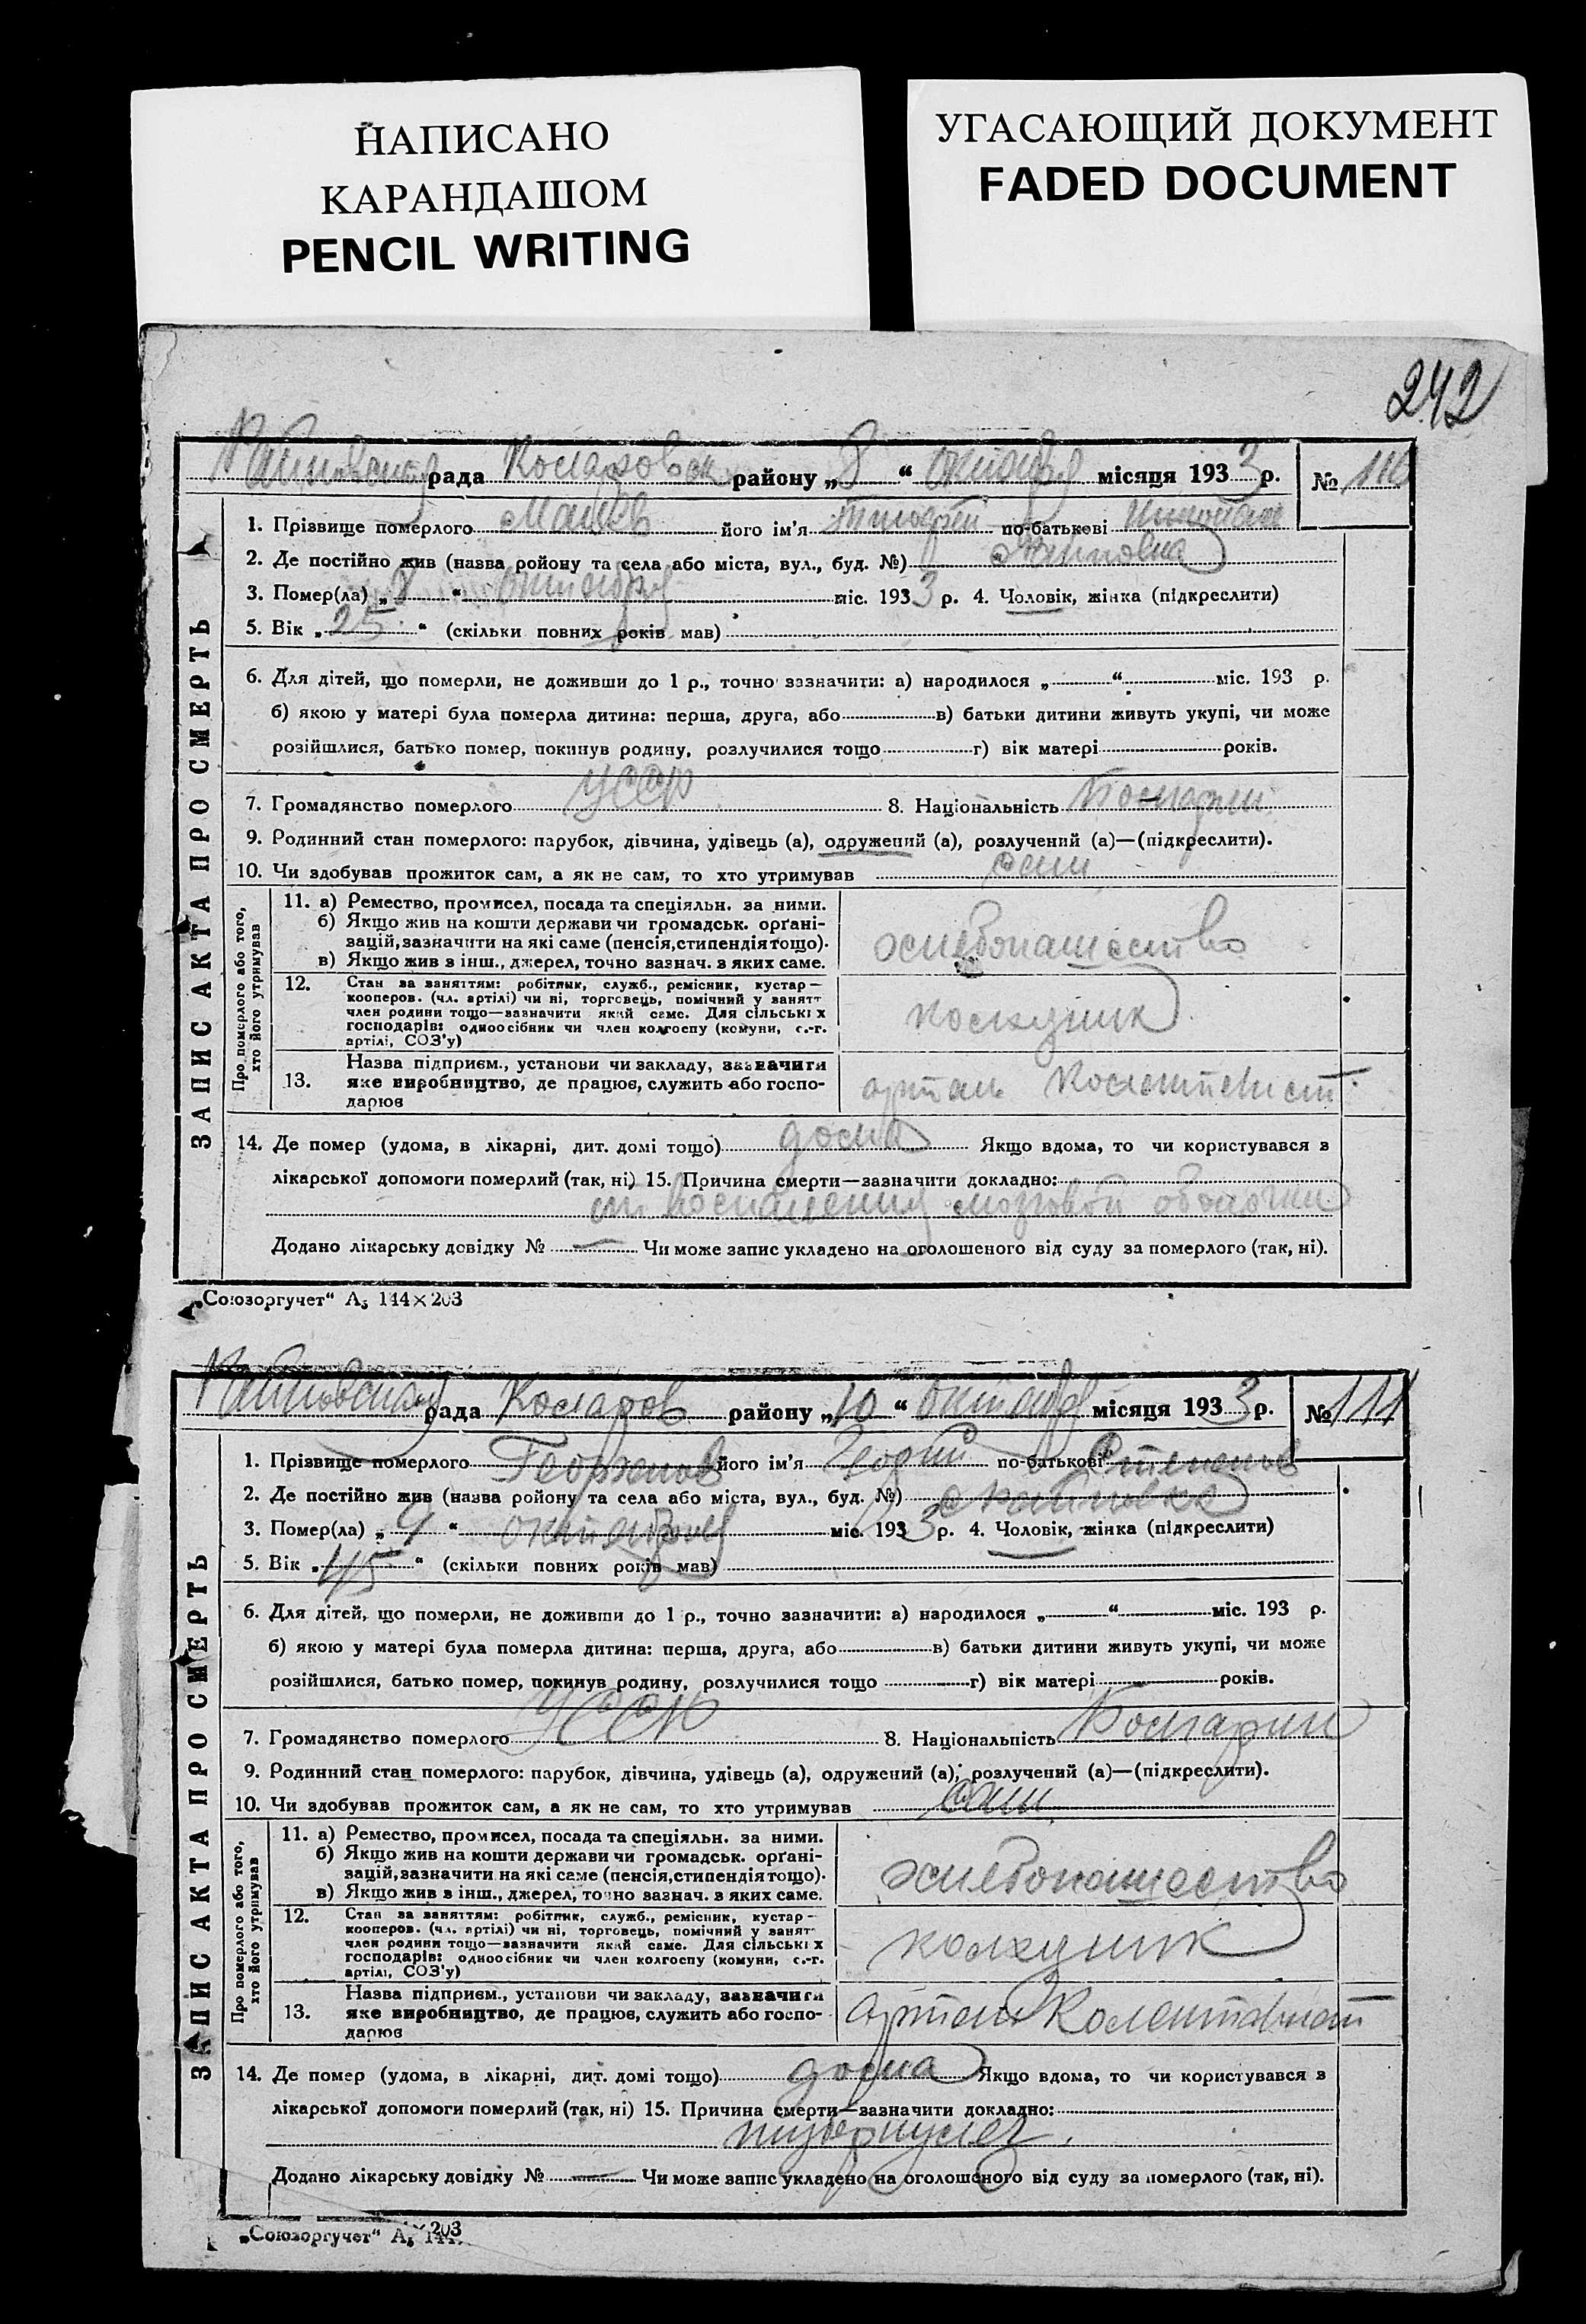 НАПИСАНО
КАРАНДАШОМ
PENCIL WRITING
УГАСАЮЩИЙ ДОКУМЕНТ
FADED DOCUMENT
242
рада Коларовск району „8“ октября місяця 1933 р. №
ЗАПИС АКТА ПРО СМЕРТЬ
1. Прізвище померлого його ім'я по-батькові
2. Де постійно жив (назва ройону та села або міста, вул., буд. №)
3. Помер(ла) „8“ октября міс. 1933 р. 4. Чоловік, жінка (підкреслити)
5. Вік „25“ (скільки повних років мав)
6. Для дітей, що померли, не доживши до 1 р., точно зазначити: а) народилося „ “ міс. 193 р.
б) якою у матері була померла дитина: перша, друга, або в) батьки дитини живуть укупі, чи може
розійшлися, батько помер, покинув родину, розлучилися тощо г) вік матері років.
7. Громадянство померлого УССР 8. Національність Болгарин
9. Родинний стан померлого: парубок, дівчина, удівець (а), одружений (а), розлучений (а)—(підкреслити).
10. Чи здобував прожиток сам, а як не сам, то хто утримував сам
Про померлого або того, хто його утримував
11. а) Ремество, промисел, посада та спеціяльн. за ними.
б) Якщо жив на кошти держави чи громадськ. орґані-
зацій, зазначити на які саме (пенсія, стипендія тощо).
в) Якщо жив з інш., джерел, точно зазнач. з яких саме.
хлебопашество
12. Стан за заняттям: робітник, служб., ремісник, кустар—
кооперов. (чл. артілі) чи ні, торговець, помічний у занятт
член родини тощо—зазначити який саме. Для сільських
господарів: одноосібник чи член колгоспу (комуни, с.-г.
артілі, СОЗ'у)
колхозник
13. Назва підприєм., установи чи закладу, зазначити
яке виробництво, де працює, служить або госпо-
дарює
артель Коллективист
14. Де помер (удома, в лікарні, дит. домі тощо) дома Якщо вдома, то чи користувався з
лікарської допомоги померлий (так, ні) 15. Причина смерти—зазначити докладно:
от воспаления мозговой оболочки
Додано лікарську довідку № — Чи може запис укладено на оголошеного від суду за померлого (так, ні).
„Союзоргучет“ А₅ 144×203
рада Коларов району „10“ октября місяця 1933 р. № 111
ЗАПИС АКТА ПРО СМЕРТЬ
1. Прізвище померлого його ім'я по-батькові
2. Де постійно жив (назва ройону та села або міста, вул., буд. №)
3. Помер(ла) „9“ октября міс. 1933 р. 4. Чоловік, жінка (підкреслити)
5. Вік „45“ (скільки повних років мав)
6. Для дітей, що померли, не доживши до 1 р., точно зазначити: а) народилося „ “ міс. 193 р.
б) якою у матері була померла дитина: перша, друга, або в) батьки дитини живуть укупі, чи може
розійшлися, батько помер, покинув родину, розлучилися тощо г) вік матері років.
7. Громадянство померлого УССР 8. Національність Болгарин
9. Родинний стан померлого: парубок, дівчина, удівець (а), одружений (а), розлучений (а)—(підкреслити).
10. Чи здобував прожиток сам, а як не сам, то хто утримував сам
Про померлого або того, хто його утримував
11. а) Ремество, промисел, посада та спеціяльн. за ними.
б) Якщо жив на кошти держави чи громадськ. орґані-
зацій, зазначити на які саме (пенсія, стипендія тощо).
в) Якщо жив в інш., джерел, точно зазнач. з яких саме.
хлебопашество
12. Стан за заняттям: робітник, служб., ремісник, кустар—
кооперов. (чл. артілі) чи ні, торговець, помічний у занят
член родини тощо—зазначити який саме. Для сільських
господарів: одноосібник чи член колгоспу (комуни, с.-г.
артілі, СОЗ'у)
колхозник
13. Назва підприєм., установи чи закладу, зазначити
яке виробництво, де працює, служить або госпо-
дарює
артель Коллективист
14. Де помер (удома, в лікарні, дит. домі тощо) дома Якщо вдома, то чи користувався з
лікарської допомоги померлий (так, ні) 15. Причина смерти—зазначити докладно:
туберкулез.
Додано лікарську довідку № — Чи може запис укладено на оголошеного від суду за померлого (так, ні).
„Союзоргучет“ А₅ 144×203